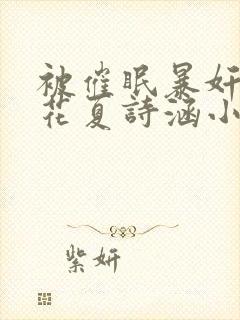 被催眠暴奸
花夏詩涵小
紫妍